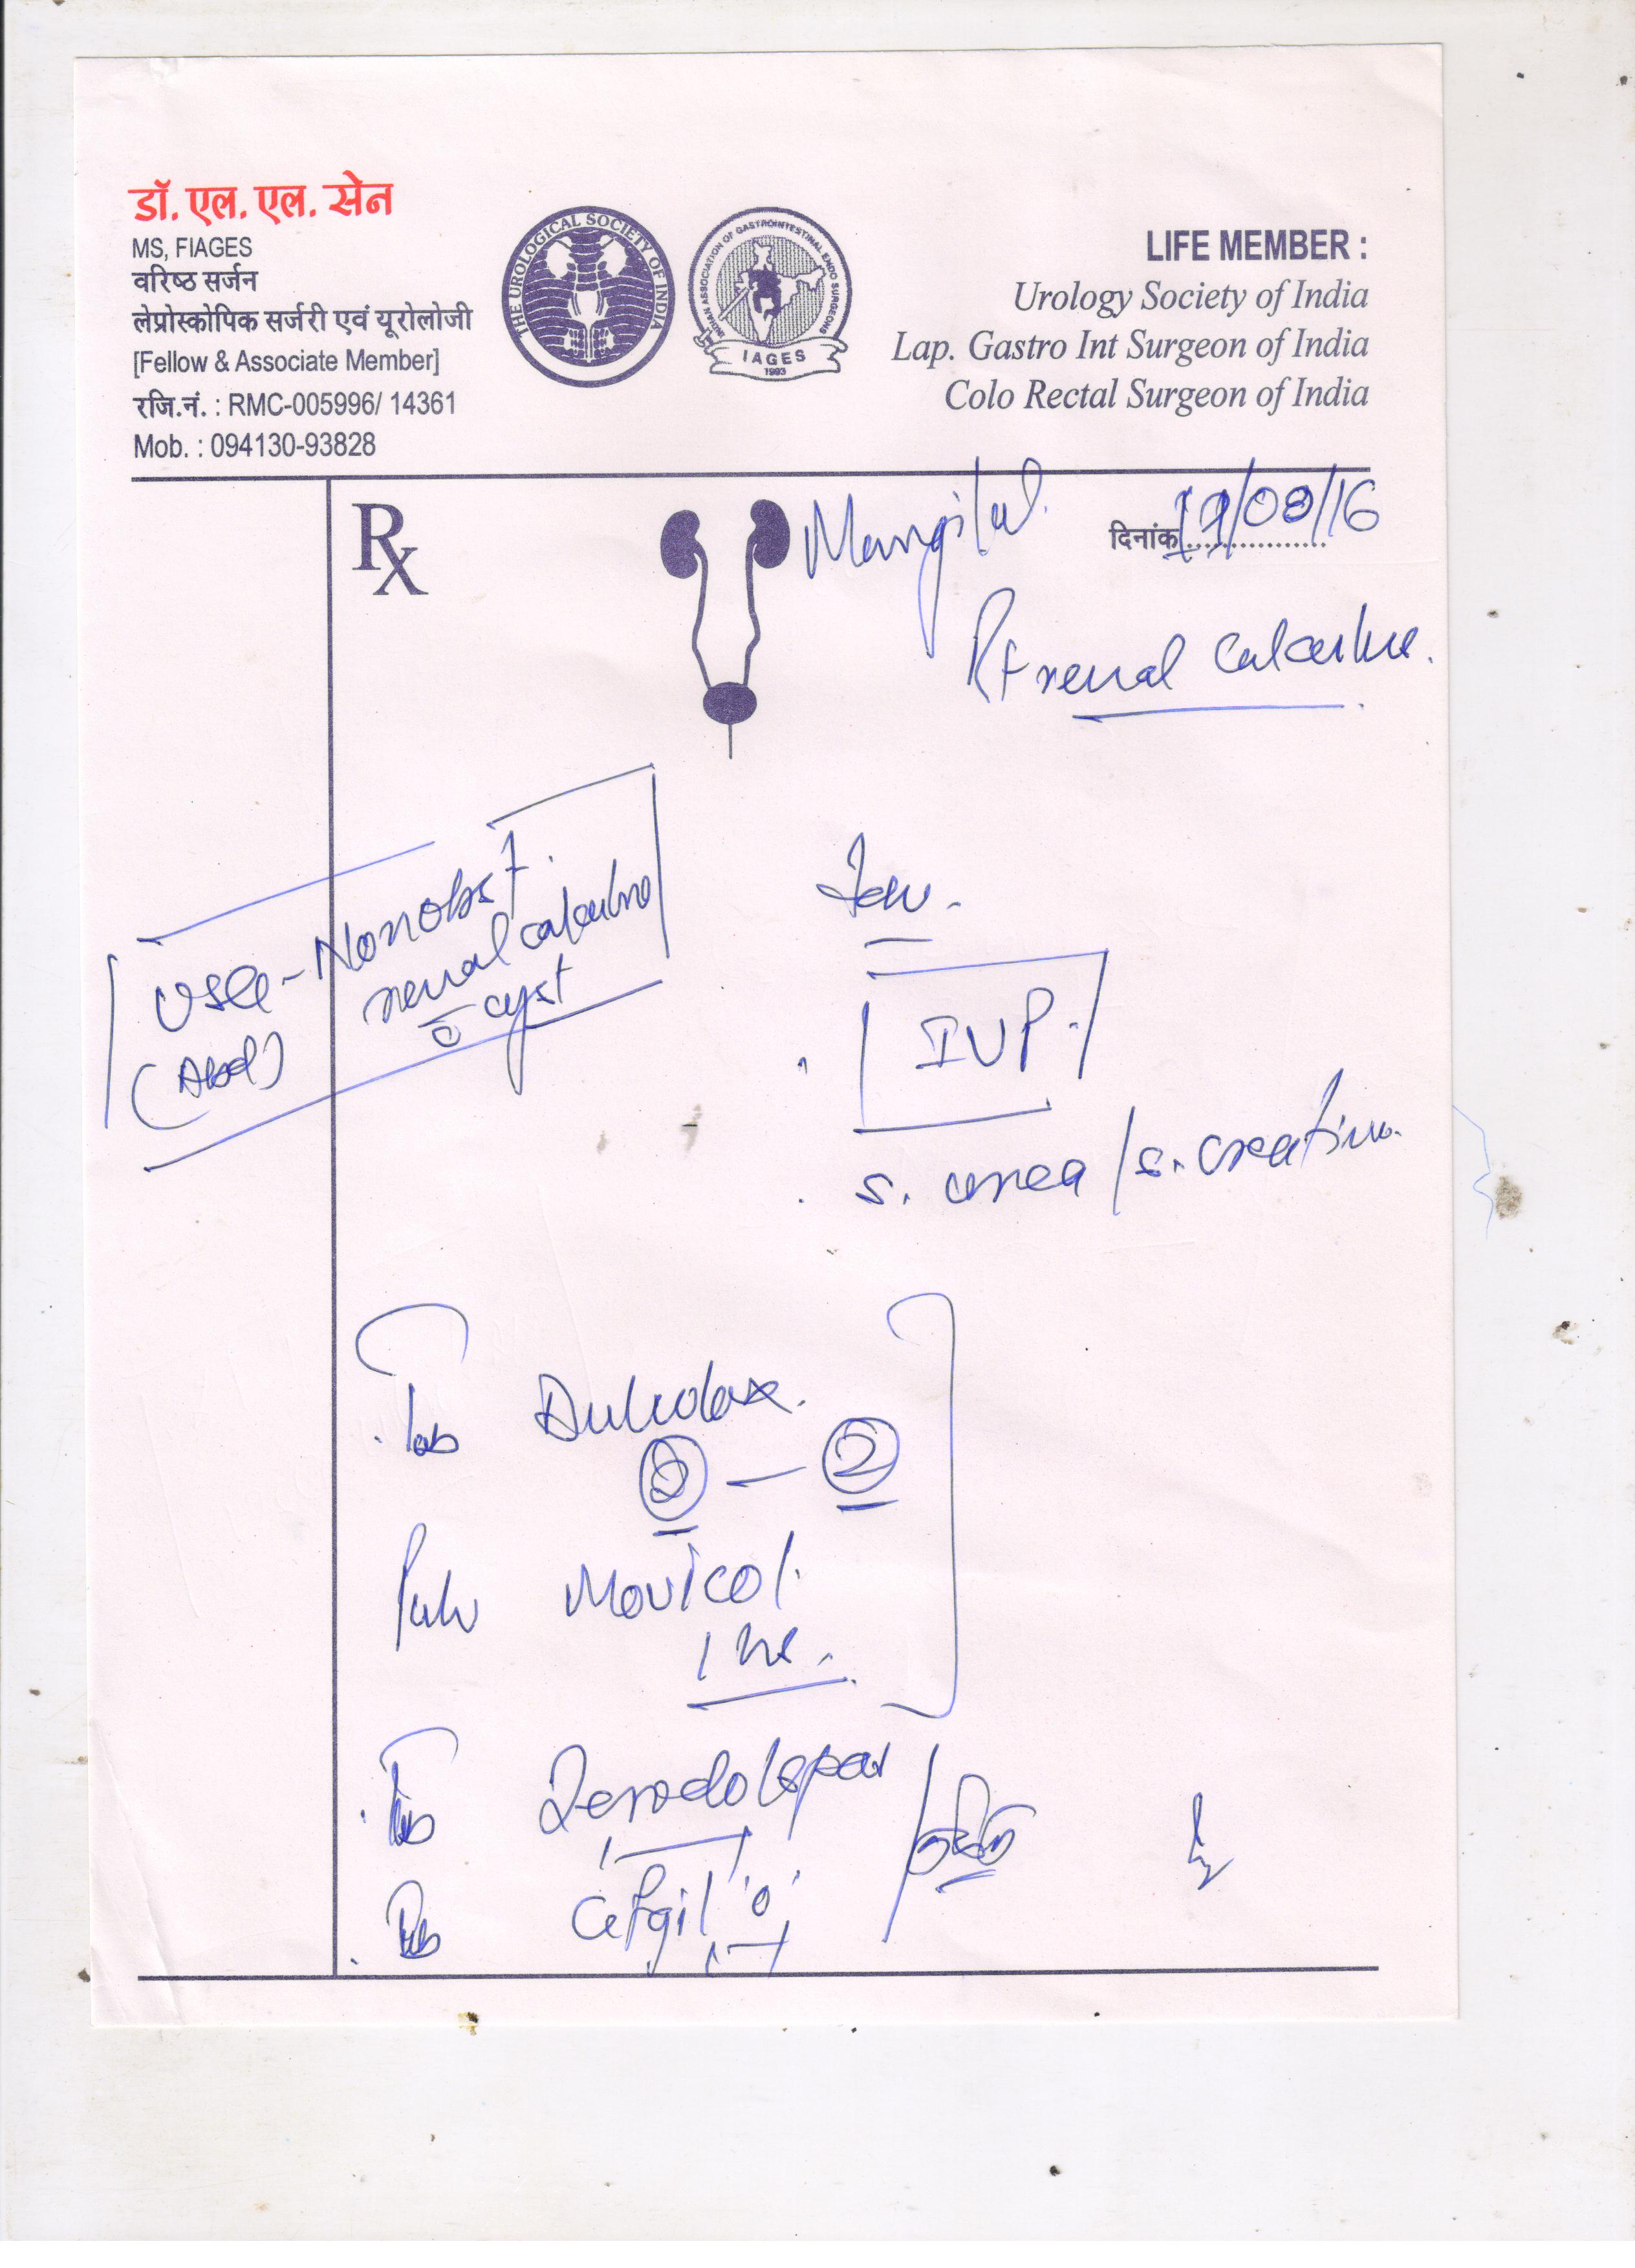 डॉ. एल. एल. सेन
MS, FIAGES
वरिष्ठ सर्जन
लेप्रोस्कोपिक सर्जरी एवं यूरोलोजी
[Fellow & Associate Member]
रजि.नं. : RMC-005996/ 14361
Mob. : 094130-93828
THE UROLOGICAL SOCIETY OF INDIA
INDIAN ASSOCIATION OF GASTROINTESTINAL ENDO SURGEONS
IAGES
1993
LIFE MEMBER :
Urology Society of India
Lap. Gastro Int Surgeon of India
Colo Rectal Surgeon of India
Rx
Mangilal
दिनांक 19/08/16
Rt renal calculus.
USG - Nonobst.
(Abd)
renal calculus
c̄ cyst
IVP.
s. urea / s. creatinine
Tab Dulcolax.
2 — 2
Pulv Movicol.
Tab Zerodol spas
Tab Cefgil 'o'